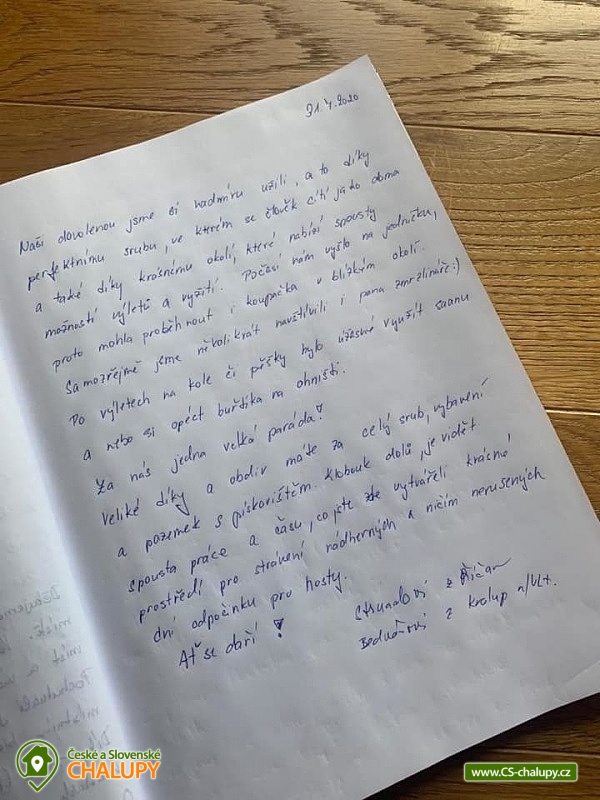 31.7.2020
Naši dovolenou jsme si nadmíru užili, a to díky
perfektnímu srubu, ve kterém se člověk cítí jako doma
a také díky krásnému okolí, které nabízí spousty
možností výletů a vyžití. Počasí nám vyšlo na jedničku,
proto mohla proběhnout i koupačka v blízkém okolí.
Samozřejmě jsme několikrát navštívili i pana zmrzlináře :)
Po výletech na kole či pěšky bylo úžasné využít saunu
a nebo si opéct buřtíka na ohništi.
Za nás jedna velká paráda!
Veliké díky a obdiv máte za celý srub, vybavení
a pozemek s pískovištěm. Klobouk dolů, je vidět
spousta práce a času, co jste zde vytvářeli krásné
prostředí pro strávení nádherných a ničím nerušených
dní odpočinku pro hosty.
Ať se daří!
z Říčan
z Kralup n/Vlt.
České a Slovenské
CHALUPY
www.CS-chalupy.cz